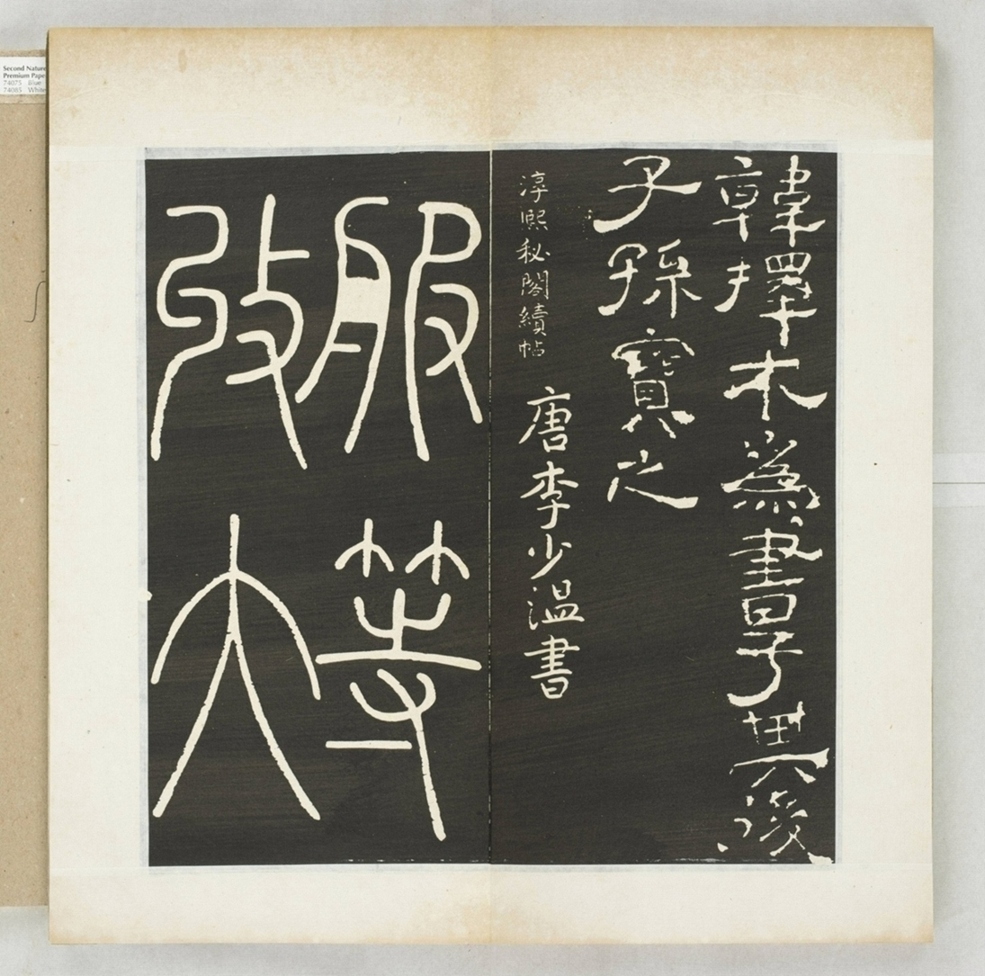 韓擇木為書黑後
子孫寶之
淳熙秘閣續帖
唐李少溫書
服等
大
Second Natur
Premium Pape
74075 Blue
74085 White